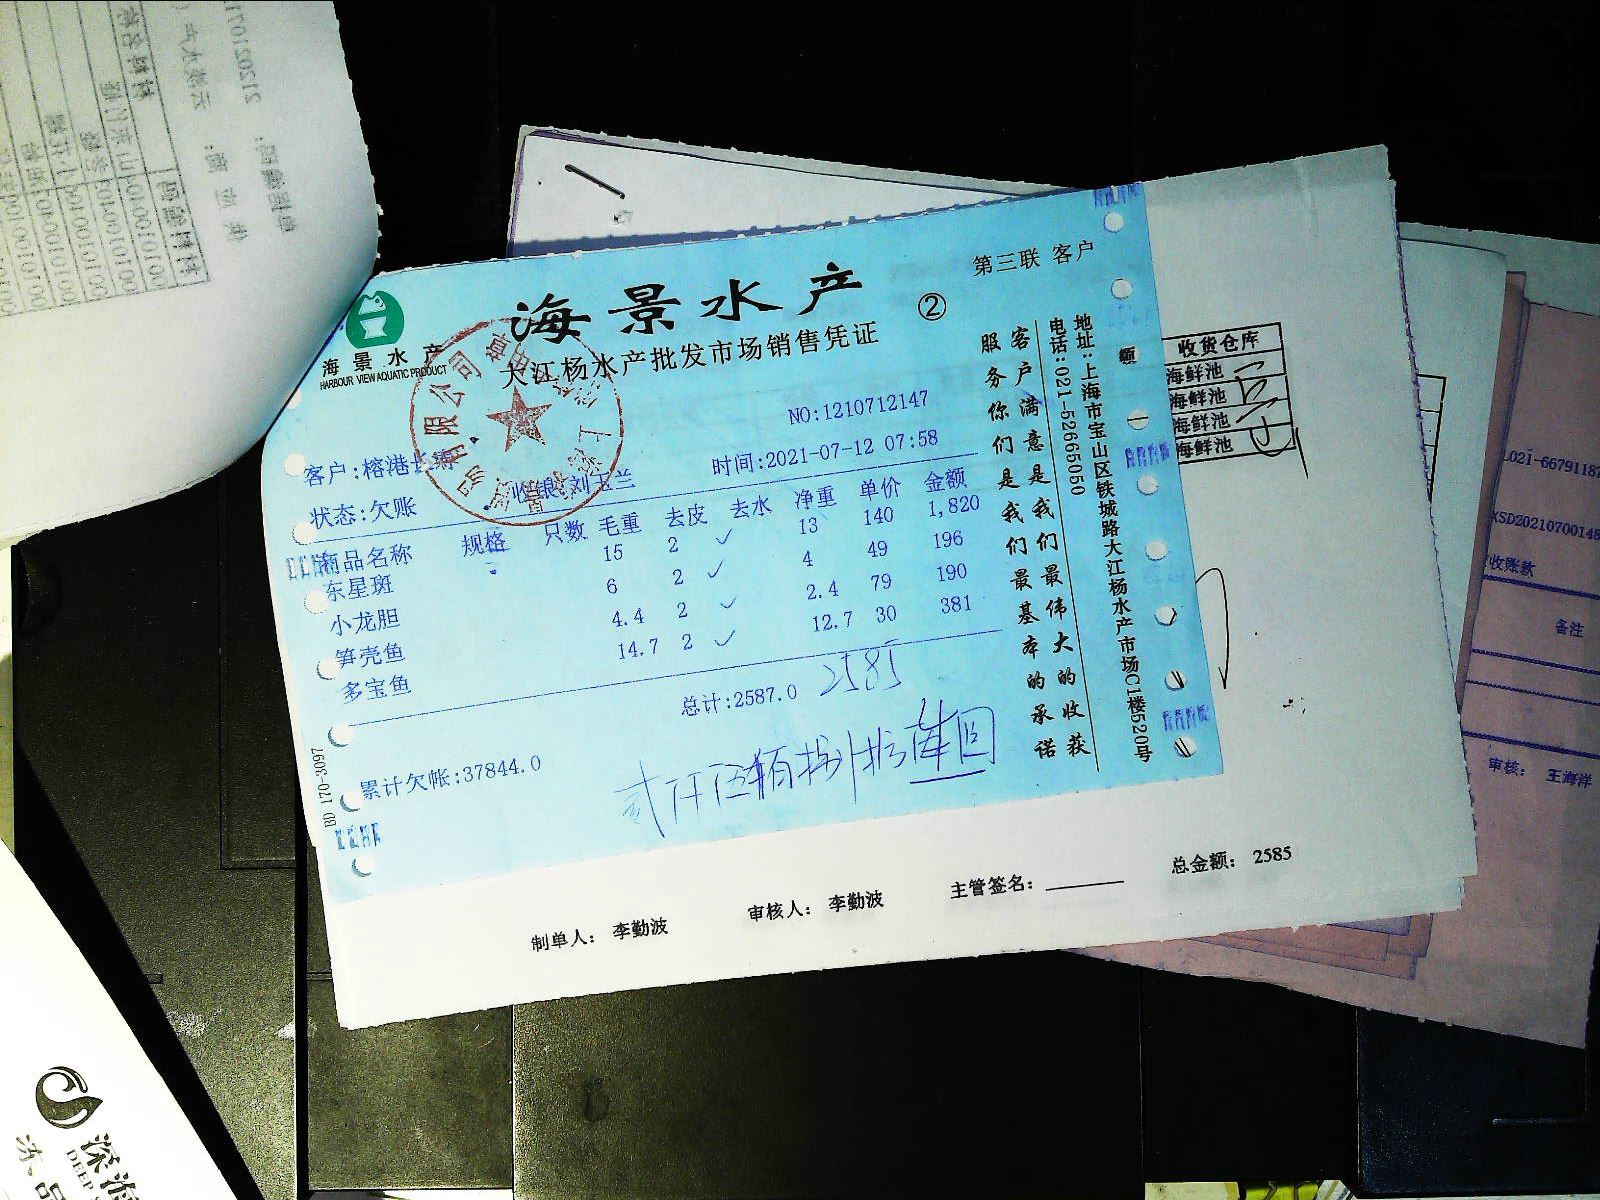 第三联 客户
海景水产
②
大江杨水产批发市场销售凭证
海景水产
HARBOUR VIEW AQUATIC PRODUCT
NO:1210712147
客户:榕港长
时间:2021-07-12 07:58
状态:欠账 收银:刘玉兰
商品名称 规格 只数 毛重 去皮 去水 净重 单价 金额
东星斑 15 2 ✓ 13 140 1,820
小龙胆 6 2 ✓ 4 49 196
笋壳鱼 4.4 2 ✓ 2.4 79 190
多宝鱼 14.7 2 ✓ 12.7 30 381
总计:2587.0 2585
累计欠帐:37844.0
贰仟伍佰捌拾伍元
BD 170-3097
客户满意是我们最伟大的收获
服务你们是我们最基本的承诺
地址:上海市宝山区铁城路大江杨水产市场C1楼520号
电话:021-52665050
有限公司
收货仓库
海鲜池
海鲜池
海鲜池
海鲜池
制单人: 李勤波 审核人: 李勤波 主管签名: 总金额: 2585
021-66791187
XSD20210700148
收账款
备注
审核: 王海洋
深海
DEEP
冻品